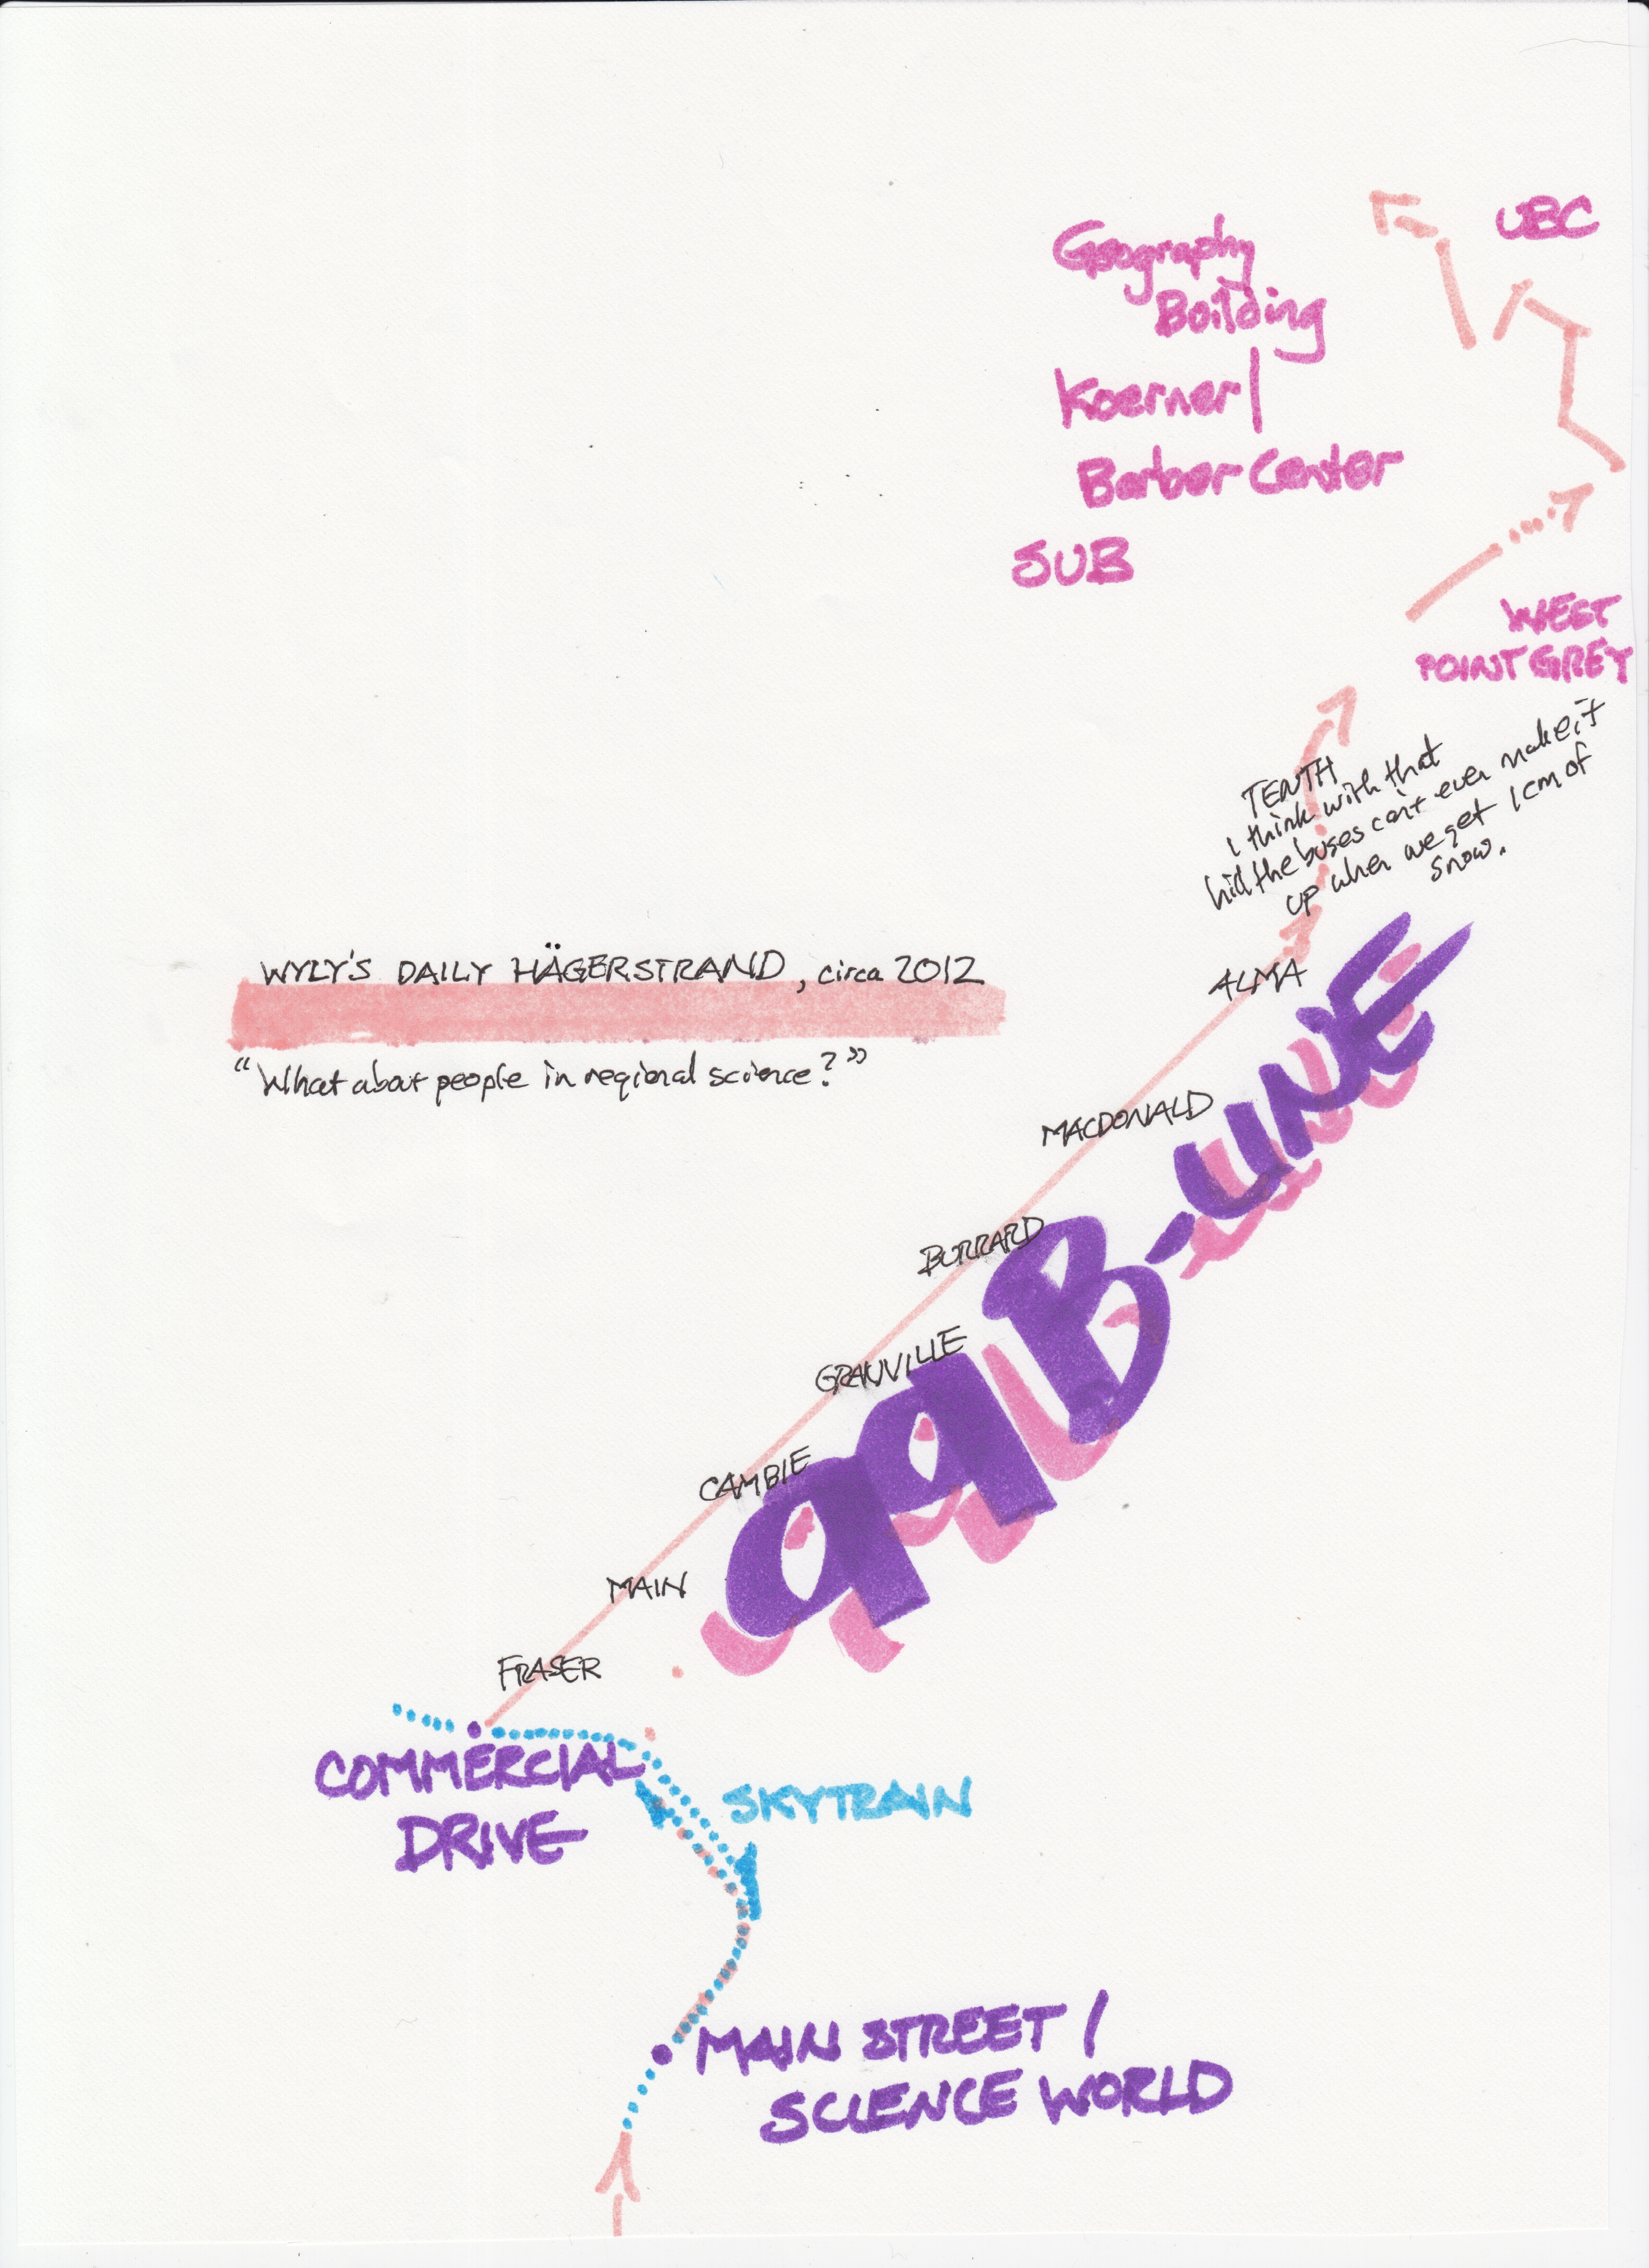 UBC
Geography
Building
Koerner/
Barber Center
SUB
WEST
POINT GREY
TENTH
I think with that
hill the buses can't even make it
up when we get 1 cm of
snow.
WYLY'S DAILY HÄGERSTRAND, circa 2012
"What about people in regional science?"
ALMA
MACDONALD
BURRARD
GRANVILLE
CAMBIE
MAIN
FRASER
99 B-LINE
COMMERCIAL
DRIVE
SKYTRAIN
MAIN STREET /
SCIENCE WORLD